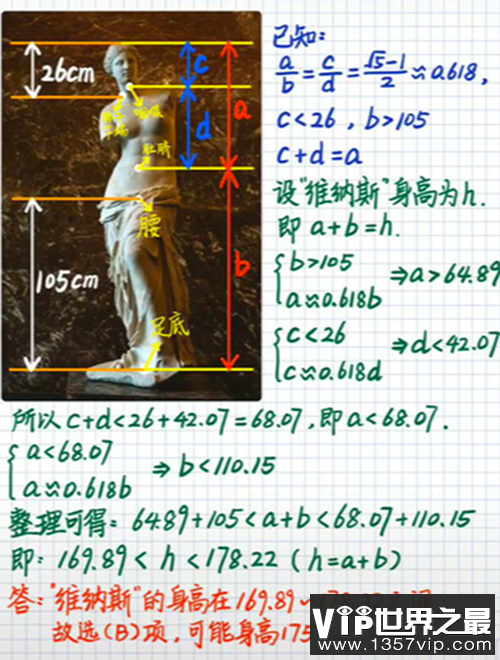 26cm
c
d
a
b
咽喉
肚脐
腰
105cm
足底
已知:
a/b = c/d = (√5-1)/2 ≈ 0.618,
c<26, b>105
c+d=a
设"维纳斯"身高为h.
即 a+b=h.
{ b>105
a≈0.618b ⇒a>64.89
{ c<26
c≈0.618d ⇒d<42.07
所以 c+d<26+42.07=68.07, 即 a<68.07.
{ a<68.07
a≈0.618b ⇒ b<110.15
整理可得: 64.89+105<a+b<68.07+110.15
即: 169.89<h<178.22 (h=a+b)
答: "维纳斯"的身高在169.89
故选(B)项, 可能身高175
VIP世界之最
www.1357vip.com